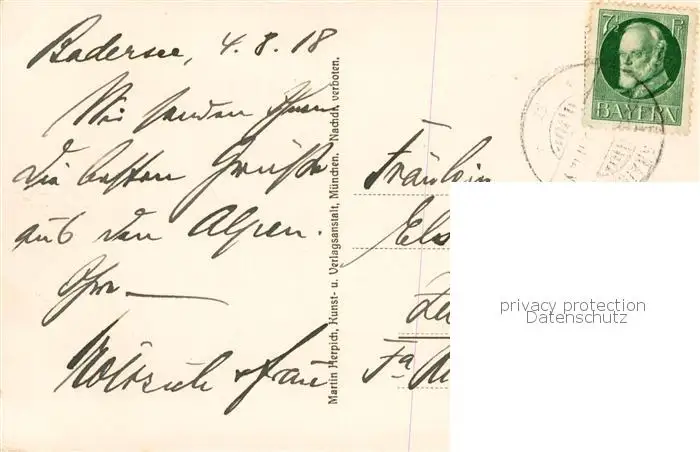 Badersee, 4.8.18
Wir senden Ihnen
die besten Grüße
aus den Alpen.
Ihre
& Frau
Martin Herpich, Kunst- u. Verlagsanstalt, München. Nachdr. verboten.
Fräulein
Els
Fa
7½ Pf
BAYERN
privacy protection
Datenschutz